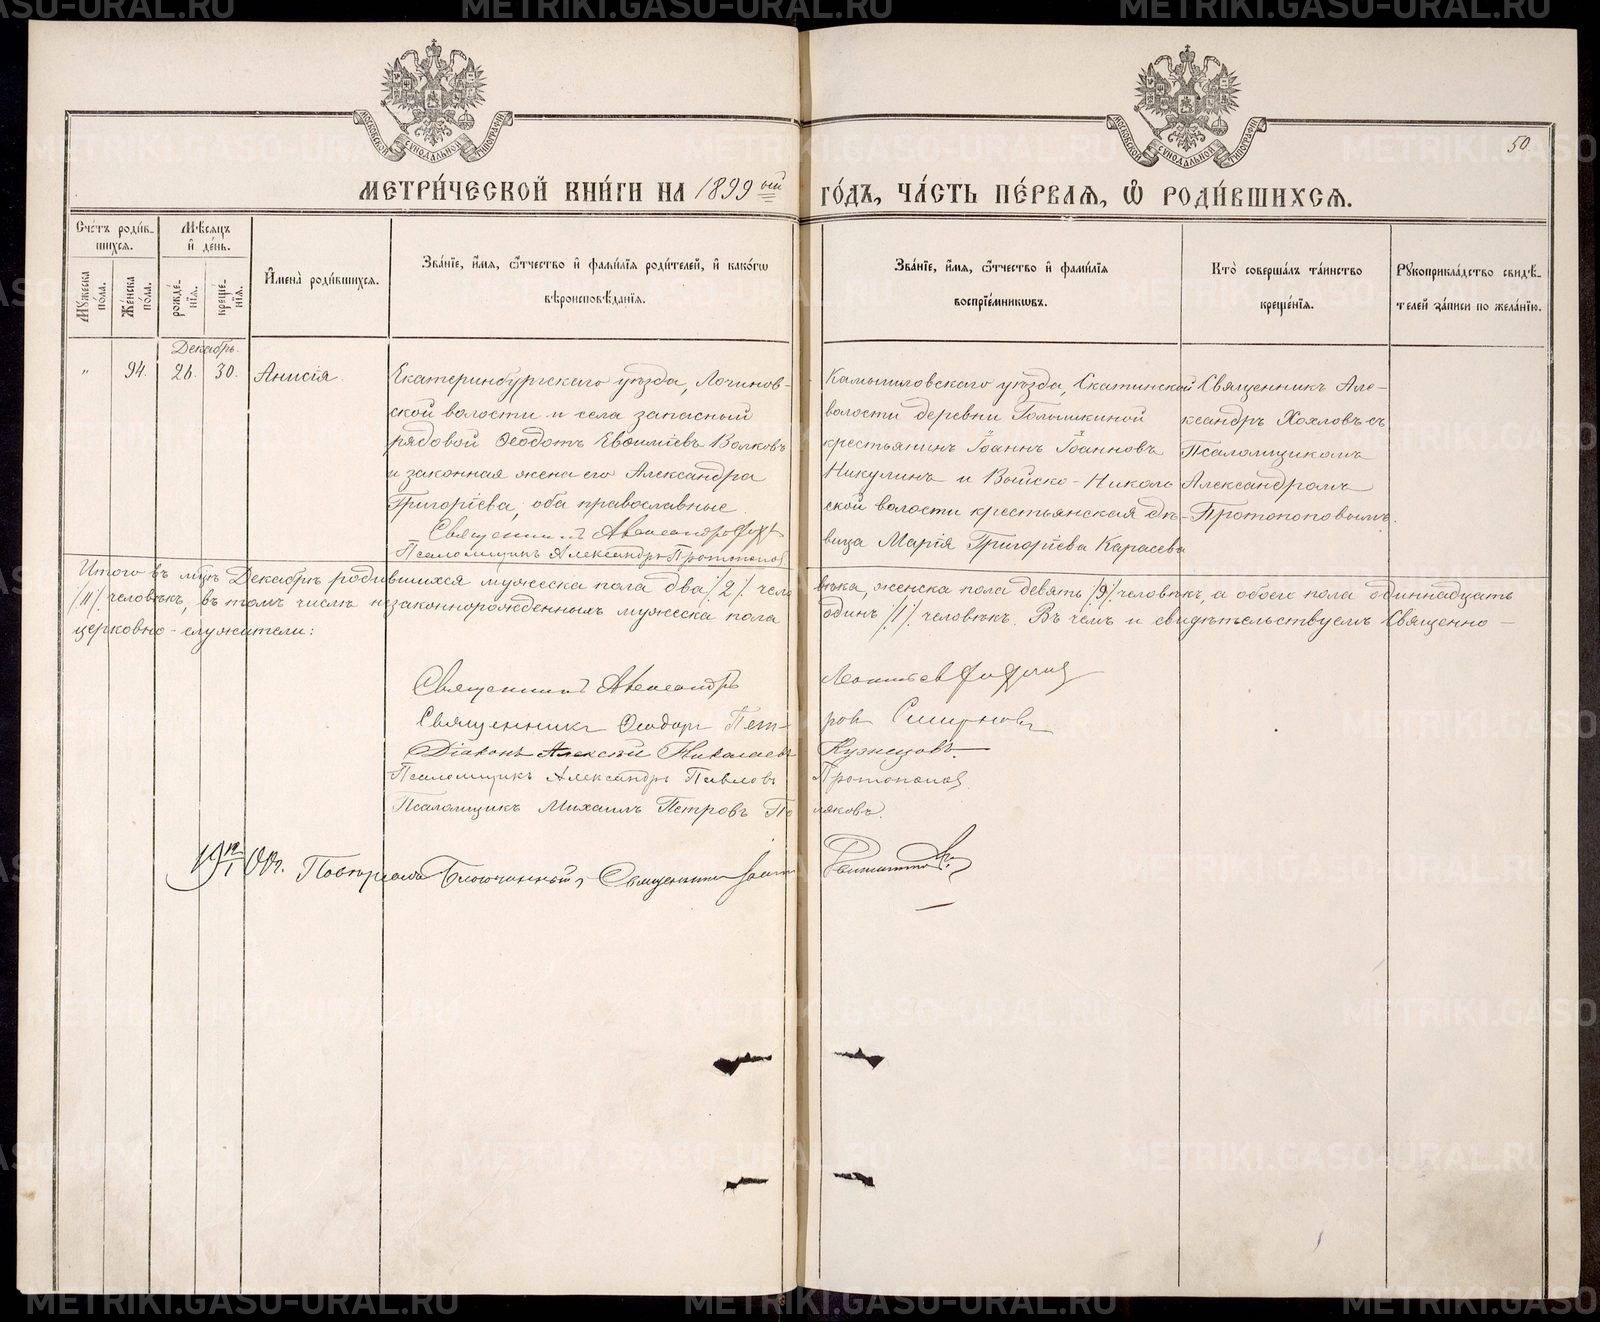 МЕТРИ́ЧЕСКОЙ КНИ́ГИ НА 1899 ый ГО́ДЪ, ЧА́СТЬ ПЕ́РВАЯ, Ѽ РОДИ́ВШИХСЯ.
50
Сче́тъ роди́в-
шихся.
Мѣ́сяцъ
и҆ де́нь.
Мꙋ́жеска
по́ла.
Же́нска
по́ла.
рожде́-
нїѧ.
креще́-
нїѧ.
И҆мена̀ роди́вшихся.
Зва́нїе, и҆́мѧ, ѻ҆́тчество и҆ фами́лїѧ роди́телей, и҆ како́гѡ
вѣроисповѣ́данїѧ.
Зва́нїе, и҆́мѧ, ѻ҆́тчество и҆ фами́лїѧ
воспрїе́мникѡвъ.
Кто̀ соверша́лъ та́инство
креще́нїѧ.
Рꙋкоприкла́дство свидѣ́-
телей за́писи по жела́нїю.
Декабрь.
" 94. 26. 30. Анисія.
Екатеринбургскаго уѣзда, Логинов-
ской волости и села запасный
рядовой Ѳеодотъ Евѳиміевъ Волковъ
и законная жена его Александра
Григоріева, оба православные.
Священникъ Александръ
Псаломщикъ Александръ Протопопов
Камышловскаго уѣзда, Скатинской
волости деревни Голышкиной
крестьянинъ Іоаннъ Іоанновъ
Никулинъ и Войско-Николь
ской волости крестьянская дѣ-
вица Марія Григоріева Карасева
Священникъ Але-
ксандръ Хохловъ съ
Псаломщикомъ
Александромъ
Протопоповымъ.
Итого въ мцѣ Декабрѣ родившихся мужеска пола два /2/ чело вѣка, женска пола девять /9/ человѣкъ, а обоего пола одиннадцать
/11/ человѣкъ, въ томъ числѣ незаконнорожденныхъ мужеска пола одинъ /1/ человѣкъ. Въ чемъ и свидѣтельствуемъ Священно-
церковно-служители:
Священникъ Александръ
Священникъ Ѳеодоръ Пет- ровъ Смирновъ
Діаконъ Алексѣй Николаевъ Кузнецовъ.
Псаломщикъ Александръ Павловъ Протопопов
Псаломщикъ Михаилъ Петровъ По ляковъ.
19 12/1 00 г. Повѣрялъ Благочинный, Священникъ
METRIKI.GASU-URAL.RU